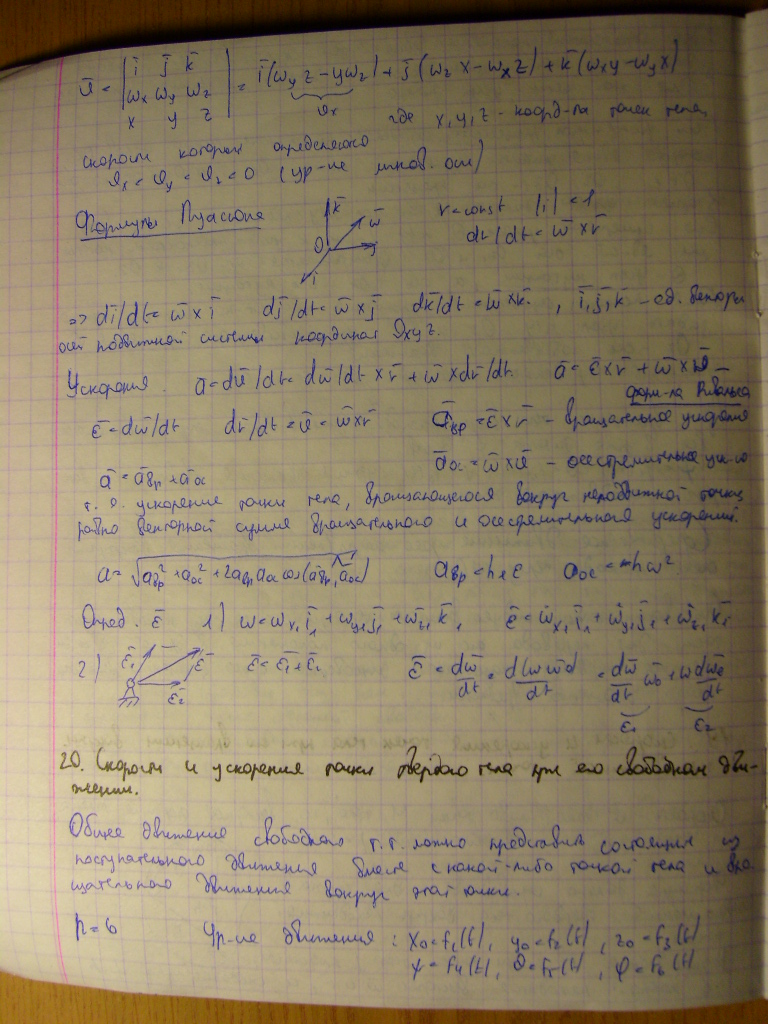 ῡ = | ī j̄ k̄ ; ωx ωy ωz ; x y z | = ī(ωy z − yωz) + j̄(ωz x − ωx z) + k̄(ωx y − ωy x)
ϑx
где x, y, z - коорд-ты точек тела,
скорости которых определяются
ϑx = ϑy = ϑz = 0 (ур-ие мгнов. оси)
Формулы Пуассона
k̄ ω̄ O j i
r = const |i| = 1
dr̄/dt = ω̄ × r̄
=> dī/dt = ω̄ × ī dj̄/dt = ω̄ × j̄ dk̄/dt = ω̄ × k̄ , ī, j̄, k̄ - ед. векторы
осей подвижной системы координат Oxyz.
Ускорения. ā = dῡ/dt = dω̄/dt × r̄ + ω̄ × dr̄/dt. ā = ε̄ × r̄ + ω̄ × ῡ
форм-ла Ривальса
ε̄ = dω̄/dt dr̄/dt = ῡ = ω̄ × r̄ āвр = ε̄ × r̄ - вращательное ускорение
āос = ω̄ × ῡ - осестремительное ус-ие
ā = āвр + āос
т. о. ускорение точки тела, вращающегося вокруг неподвижной точки,
равно векторной сумме вращательного и осестремительного ускорений.
a = √(aвр² + aос² + 2aвр aос cos(āвр, āос)) aвр = h₁ε aос = hω²
Опред. ε̄ 1) ω = ωx₁ ī₁ + ωy₁ j̄₁ + ωz₁ k̄₁ ε̄ = ω̇x₁ ī₁ + ω̇y₁ j̄₁ + ω̇z₁ k̄₁
2) ε̄₁ ε̄ ε̄₂ ε̄ = ε̄₁ + ε̄₂ ε̄ = dω̄/dt = d(ω ω̄0)/dt = dω/dt ω̄0 + ω dω̄0/dt
ε̄₁ ε̄₂
20. Скорости и ускорения точки твердого тела при его свободном дви-
жении.
Общее движение свободного т.т. можно представить состоящим из
поступательного движения вместе с какой-либо точкой тела и вра-
щательного движения вокруг этой точки.
n = 6 Ур-ие движения: x0 = f₁(t), y0 = f₂(t), z0 = f₃(t)
ψ = f₄(t), θ = f₅(t), φ = f₆(t)